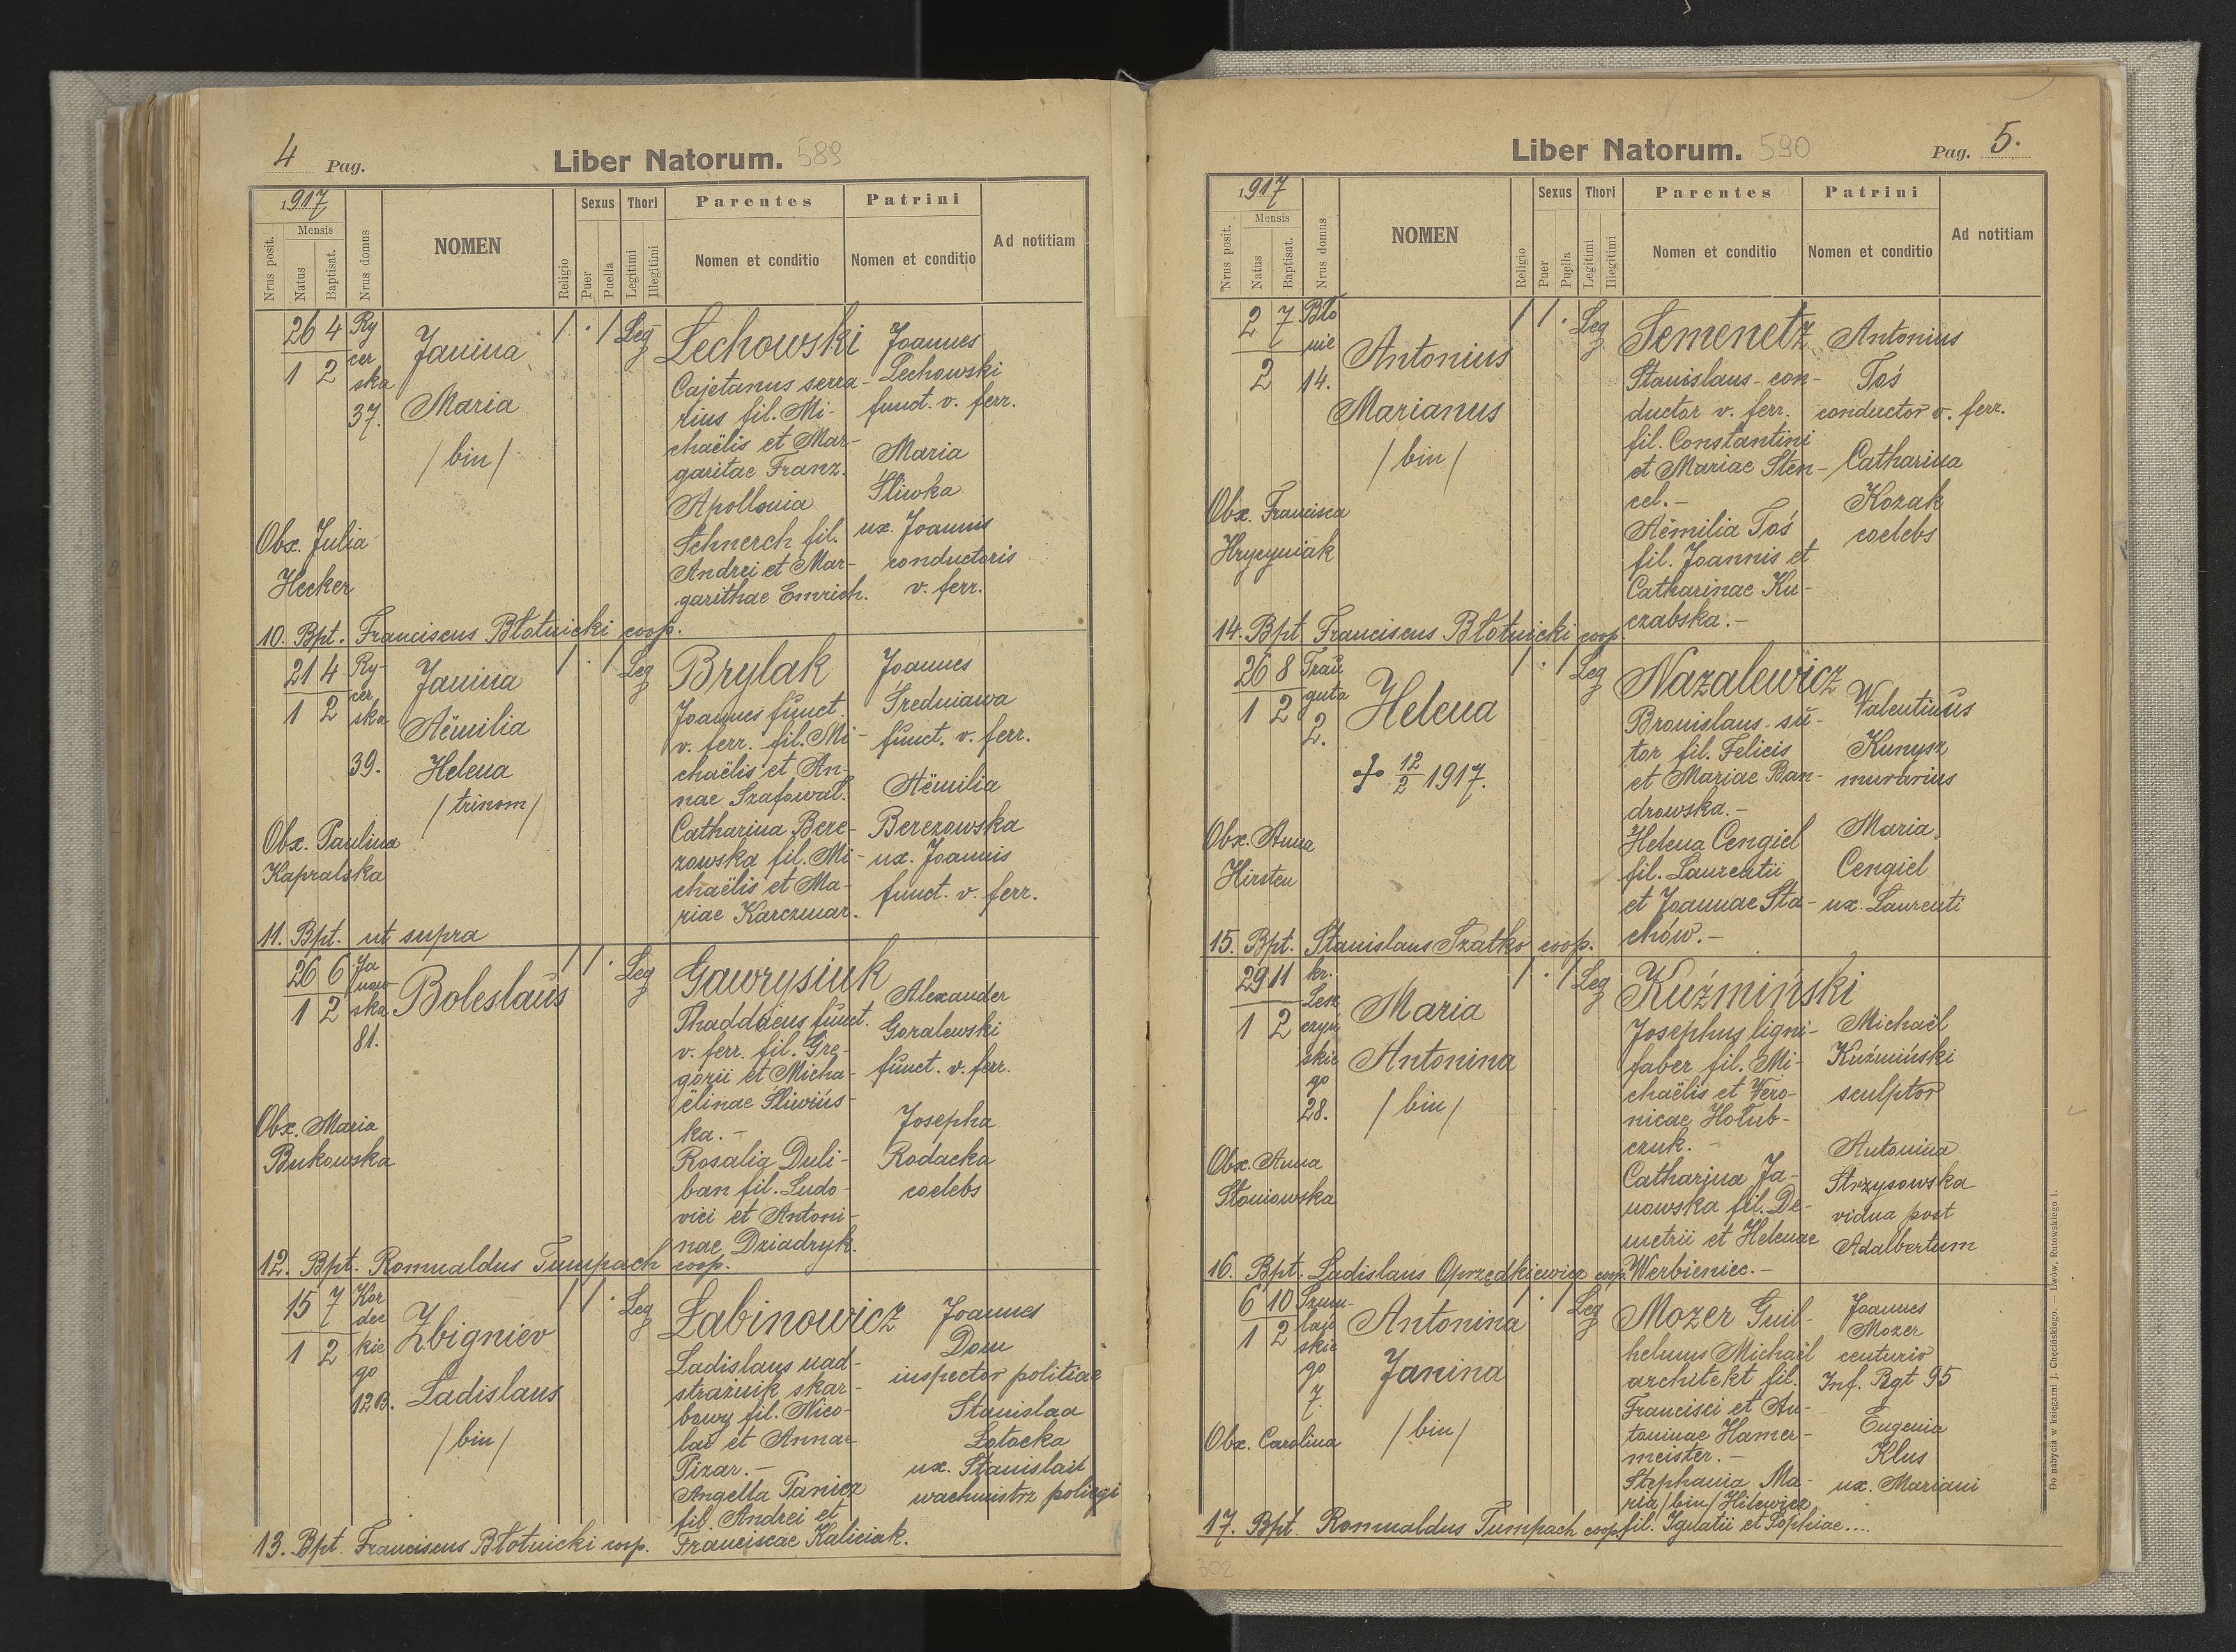 4 Pag.
Liber Natorum. 589
1917
Nrus posit.
Mensis
Natus
Baptisat.
Nrus domus
NOMEN
Religio
Sexus
Puer
Puella
Thori
Legitimi
Illegitimi
Parentes
Nomen et conditio
Patrini
Nomen et conditio
Ad notitiam
26 4
1 2
Ry
cer
ska
37.
Janina
Maria
/bin/
1 · 1 Leg
Lechowski
Cajetanus serra-
rius fil. Mi-
chaëlis et Mar-
garitae Franz.
Apollonia
Schnerch fil.
Andrei et Mar-
garithae Emrich.
Joannes
Lechowski
funct. v. ferr.
Maria
Śliwka
ux. Joannis
conductoris
v. ferr.
Obx. Julia
Hecker
10. Bpt. Franciscus Błotnicki coop.
21 4
1 2
Ry-
cer
ska
39.
Janina
Aëmilia
Helena
/trinom/
1 · 1 Leg
Brylak
Joannes funct.
v. ferr. fil. Mi-
chaëlis et An-
nae Szafował.
Catharina Bere-
zowska fil. Mi-
chaëlis et Ma-
riae Karczmar.
Joannes
Średniawa
funct. v. ferr.
Aëmilia
Berezowska
ux. Joannis
funct. v. ferr.
Obx. Paulina
Kapralska
11. Bpt. ut supra
26 6
1 2
Ja
now
ska
81.
Boleslaus
1 1 · Leg
Gawrysiuk
Thaddaeus funct.
v. ferr. fil. Gre-
gorii et Micha-
ëlinae Śliwińs-
ka. -
Rosalia Duli-
ban fil. Ludo-
vici et Antoni-
nae Dziadryk.
Alexander
Goralewski
funct. v. ferr.
Josepha
Rodacka
coelebs
Obx. Maria
Bukowska
12. Bpt. Romualdus Tumpach coop.
15 7
1 2
Kor
dec
kie
go
12B.
Zbigniev
Ladislaus
/bin/
1 1 · Leg
Łabinowicz
Ladislaus nad-
strażnik skar-
bowy fil. Nico-
lai et Annae
Pizar. -
Angella Panicz
fil. Andrei et
Franciscae Kaliciak.
Joannes
Dom
inspector politiae
Stanislaa
Łotocka
ux. Stanislai
wachmistrz policyi
13. Bpt. Franciscus Błotnicki coop.
Liber Natorum. 590
Pag. 5.
1917
Nrus posit.
Mensis
Natus
Baptisat.
Nrus domus
NOMEN
Religio
Sexus
Puer
Puella
Thori
Legitimi
Illegitimi
Parentes
Nomen et conditio
Patrini
Nomen et conditio
Ad notitiam
2 7
2
Bło
nie
14.
Antonius
Marianus
/bin/
1 1 · Leg
Semenetz
Stanislaus con-
ductor v. ferr.
fil. Constantini
et Mariae Sten-
cel. -
Aëmilia Toś
fil. Joannis et
Catharinae Ku-
czabska. -
Antonius
Toś
conductor v. ferr.
Catharina
Kozak
coelebs
Obx. Francisca
Hrycyniak
14. Bpt. Franciscus Błotnicki coop.
26 8
1 2
Trau
guta
2.
Helena
12/2 1917.
1 · 1 Leg
Nazalewicz
Bronislaus su-
tor fil. Felicis
et Mariae Ban-
drowska. -
Helena Cengiel
fil. Laurentii
et Joannae Sta-
chów. -
Valentinus
Kunysz
murarius
Maria
Cengiel
ux. Laurenti
Obx. Anna
Hirsten
15. Bpt. Stanislaus Szatko coop.
29 11
1 2
kr.
Lesz
czyń
skie
go
28.
Maria
Antonina
/bin/
1 · 1 Leg
Kuźmiński
Josephus ligni-
faber fil. Mi-
chaëlis et Vero-
nicae Hołub-
czuk. -
Catharina Ja-
nowska fil. De-
metrii et Helenae
Werbieniec. -
Michaël
Kuźmiński
sculptor
Antonina
Strzysowska
vidua post
Adalbertum
Obx. Anna
Słoniowska
16. Bpt. Ladislaus Oprzędkiewicz coop.
6 10
1 2
Szum-
lań
skie
go
7.
Antonina
Janina
/bin/
· 1 Leg
Mozer Guil-
helmus Michaël
architekt fil.
Francisci et An-
toninae Hamer-
meister. -
Stephania Ma-
ria /bin/ Hilewicz
fil. Ignatii et Sophiae....
Joannes
Mozer
centurio
Inf. Rgt 95
Eugenia
Klus
ux. Mariani
Obx. Carolina
17. Bpt. Romualdus Tumpach coop.
302
Do nabycia w księgarni J. Chęcińskiego. — Lwów, Rutowskiego 1.